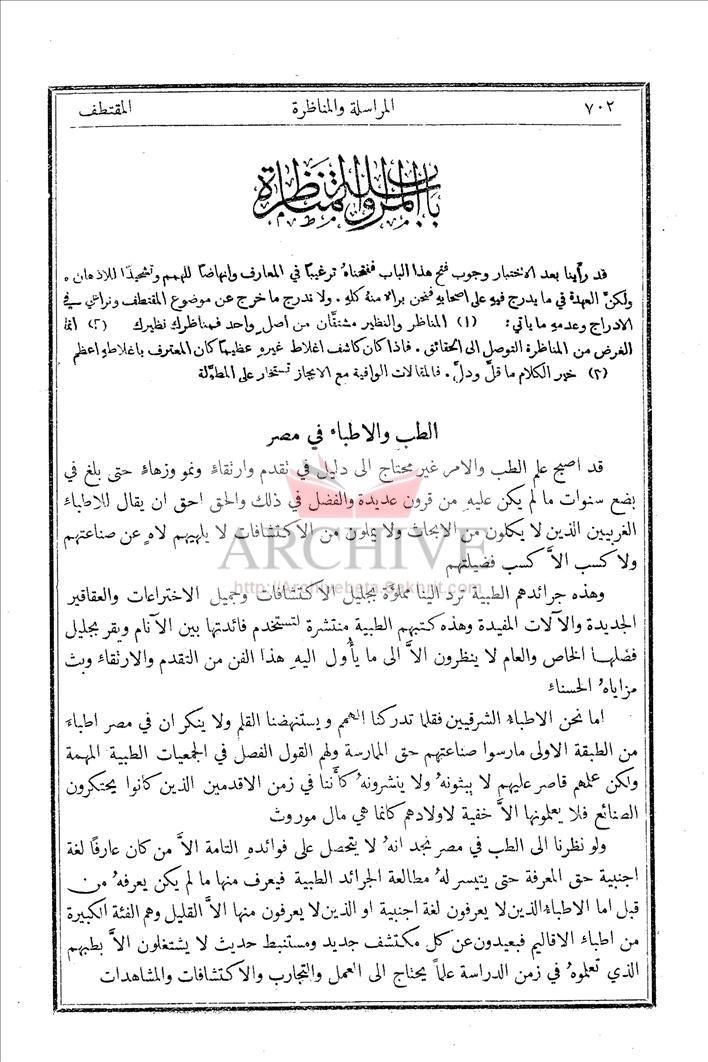 ٧٠٢ المراسلة والمناظرة المقتطف
باب المراسلة والمناظرة
قد رأينا بعد الاختبار وجوب فتح هذا الباب ففتحناهُ ترغيبًا في المعارف وانهاضًا للهمم وتشحيذًا للاذهان .
ولكنَّ العهدة في ما يدرج فيهِ على اصحابهِ فنحن براء منهُ كلهِ . ولا ندرج ما خرج عن موضوع المقتطف ونراعي في
الادراج وعدمهِ ما ياتي : (١) المناظر والنظير مشتقَّان من اصلٍ واحد فمناظرك نظيرك (٢) انما
الغرض من المناظرة التوصل الى الحقائق . فاذا كان كاشف اغلاط غيرهِ عظيمًا كان المعترف باغلاطهِ اعظم
(٣) خير الكلام ما قلَّ ودلَّ . فالمقالات الوافية مع الايجاز تستخار على المطوَّلة
الطب والاطباء في مصر
قد اصبح علم الطب والامر غير محتاج الى دليل في تقدم وارتقاء ونمو وزهاء حتى بلغ في
بضع سنوات ما لم يكن عليهِ من قرون عديدة والفضل في ذلك والحق احق ان يقال للاطباء
الغربيين الذين لا يكلون من الابحاث ولا يملون من الاكتشافات لا يلهيهم لاهٍ عن صناعتهم
ولا كسب الاَّ كسب فضيلتهم
وهذه جرائدهم الطبية ترد الينا مملوَّة بجليل الاكتشافات وجميل الاختراعات والعقاقير
الجديدة والآلات المفيدة وهذه كتبهم الطبية منتشرة لتستخدم فائدتها بين الأنام ويقر بجليل
فضلها الخاص والعام لا ينظرون الاَّ الى ما يأُول اليهِ هذا الفن من التقدم والارتقاء وبث
مزاياهُ الحسناء
اما نحن الاطباء الشرقيين فقلما تدركنا الهمم ويستنهضنا القلم ولا ينكر ان في مصر اطباء
من الطبقة الاولى مارسوا صناعتهم حق الممارسة ولهم القول الفصل في الجمعيات الطبية المهمة
ولكن علمهم قاصر عليهم لا يبثونهُ ولا ينشرونهُ كأَننا في زمن الاقدمين الذين كانوا يحتكرون
الصنائع فلا يعلمونها الاَّ خفية لاولادهم كانما هي مال موروث
ولو نظرنا الى الطب في مصر نجد انهُ لا يتحصل على فوائدهِ التامة الاَّ من كان عارفًا لغة
اجنبية حق المعرفة حتى يتيسر لهُ مطالعة الجرائد الطبية فيعرف منها ما لم يكن يعرفهُ من
قبل اما الاطباء الذين لا يعرفون لغة اجنبية او الذين لا يعرفون منها الاَّ القليل وهم الفئة الكبيرة
من اطباء الاقاليم فبعيدون عن كل مكتشف جديد ومستنبط حديث لا يشتغلون الاَّ بطبهم
الذي تعلموهُ في زمن الدراسة علماً يحتاج الى العمل والتجارب والاكتشافات والمشاهدات
ARCHIVE
http://Archivebeta.Sakhrit.com